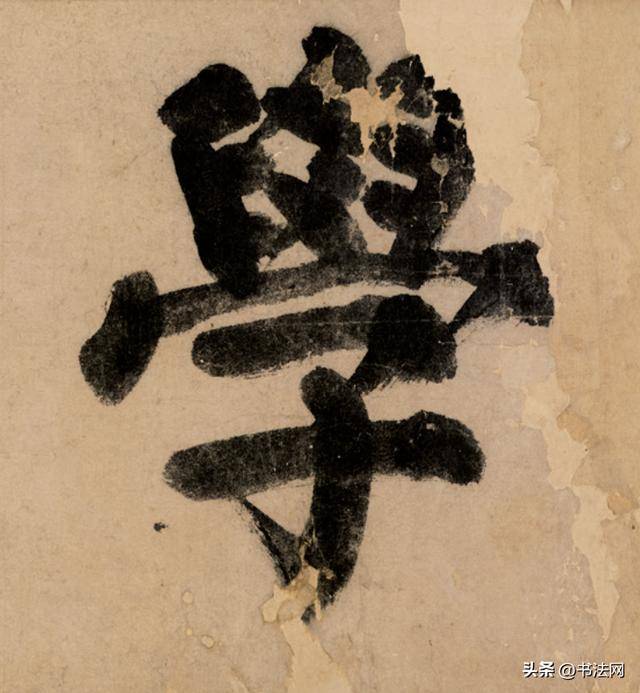 學
头条 @书法网